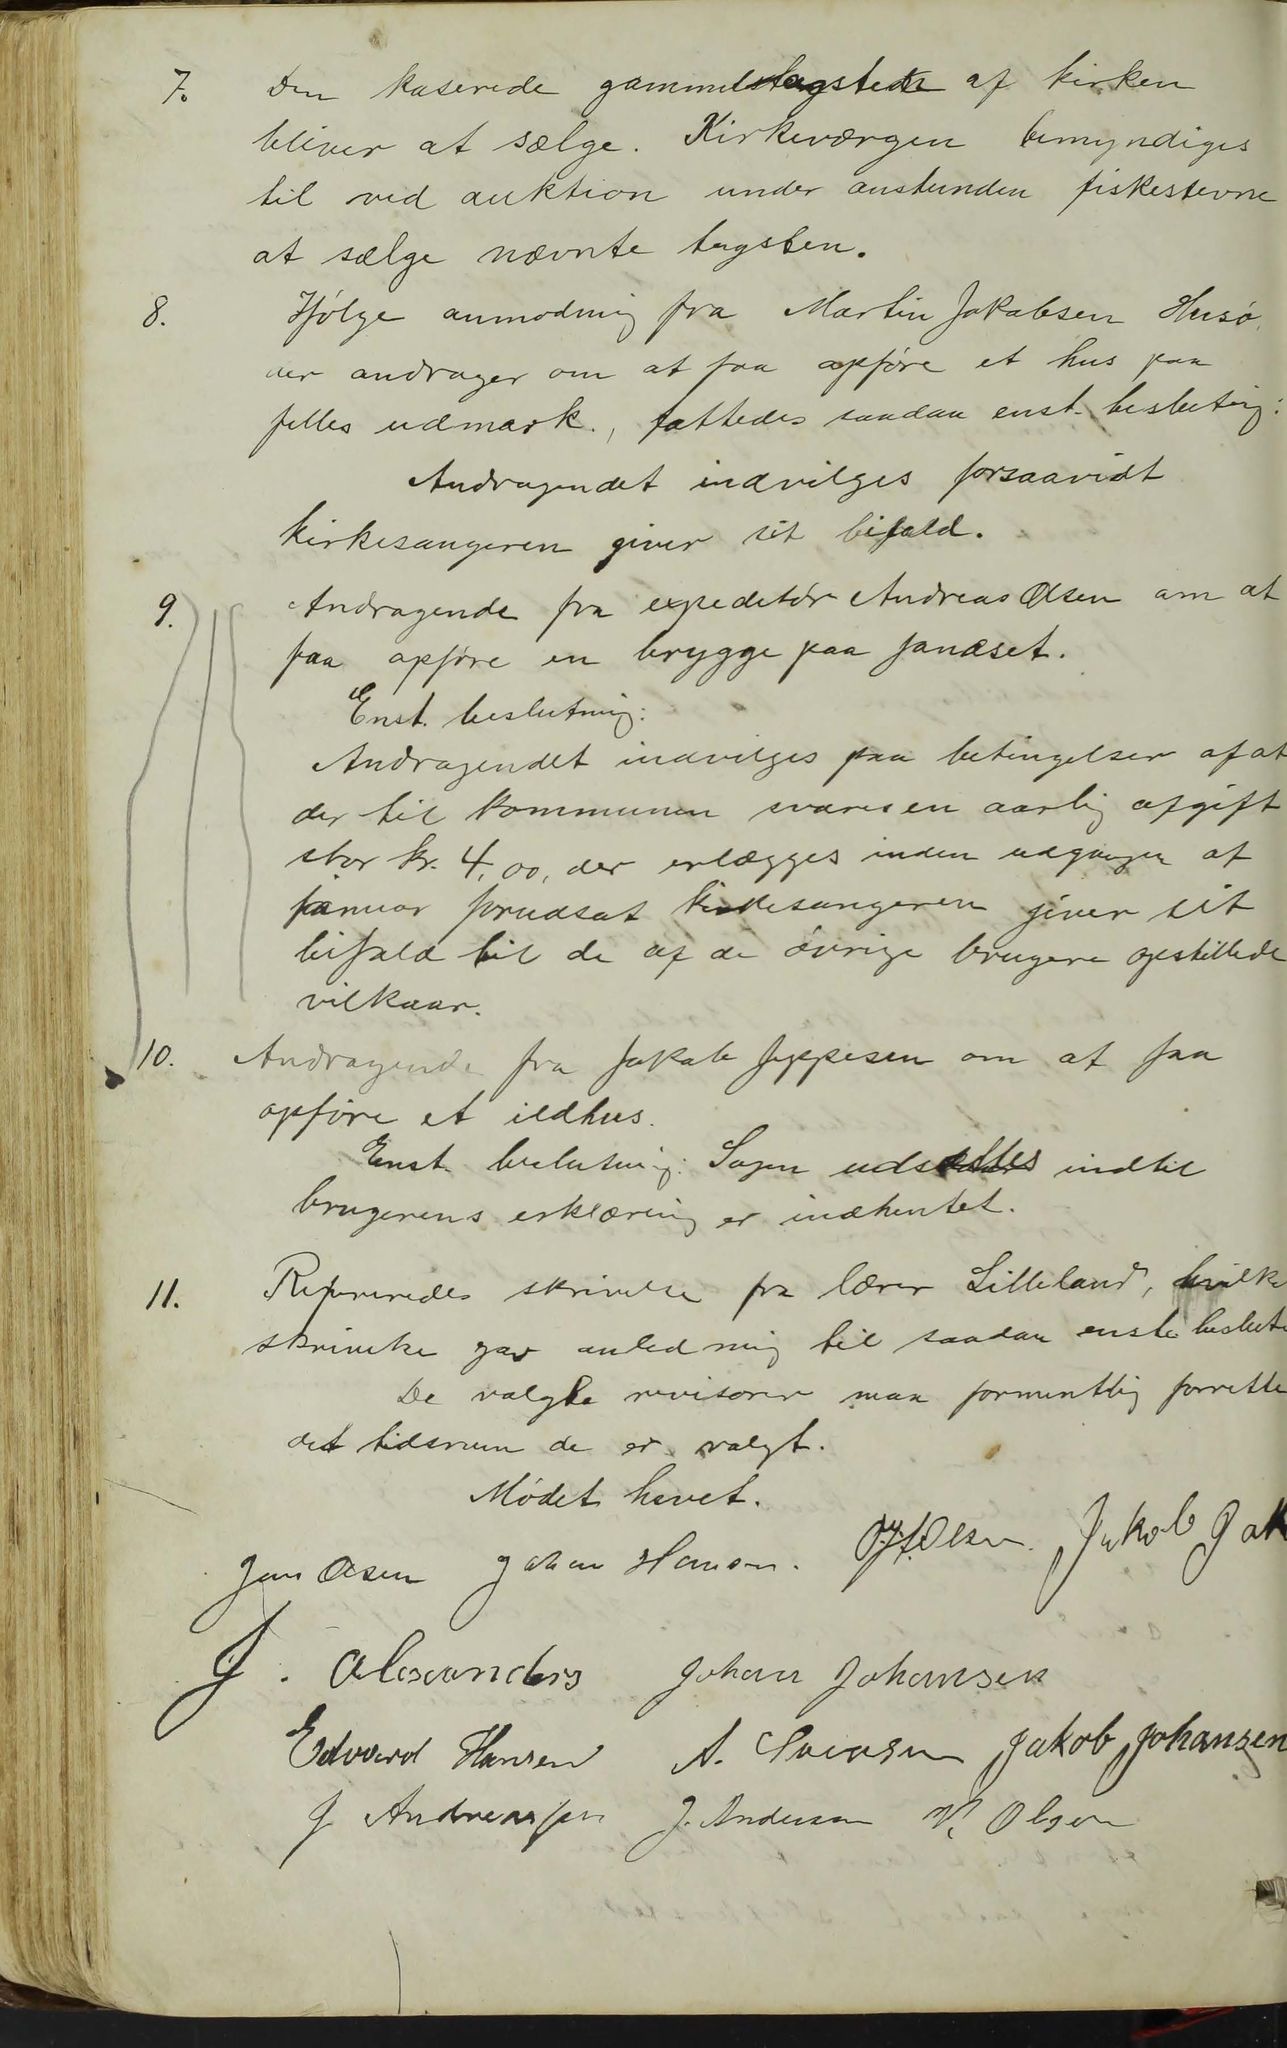 7. Den kaserede gammel tagsten af kirken
bliver at sælge. Kirkeværgen bemyndiges
til ved auktion under anstunden fiskestevne
at sælge nævnte tagsten.
8. Ifølge anmodning fra Martin Jakobsen Husø,
der andrager om at faa opføre et hus paa
felles udmark., fattedes saadan enst. beslutning:
Andragendet indvilges forsaavidt
kirkesangeren giver sit bifald.
9. Andragende fra expeditør Andreas Olsen om at
faa opføre en brygge paa Janæset.
Enst. beslutning:
Andragendet indvilges paa betingelser af at
der til kommunen svares en aarlig afgift
stor kr. 4,00, der erlægges inden udgangen af
januar forudsat kirkesangeren giver sit
bifald til de af de øvrige brugere opstillede
vilkaar.
10. Andragende fra Jakob Jeppesen om at faa
opføre et ildhus.
Enst. beslutning: Sagen udsættes indtil
brugerens erklæring er indhentet.
11. Refereredes skrivelse fra lærer Lilleland, hvilke
skrivelse gav anledning til saadan enste beslut
De valgte revisorer maa formentlig forrette
det tidsrum de er valgt.
Mødet hævet.
Jens Olsen Johan Hansen. Olsen. Jakob Jak
J. Alexanders Johan Johansen
Edvard Hansen A. Jakob Johansen
J Andreassen J. Andersen Olsen